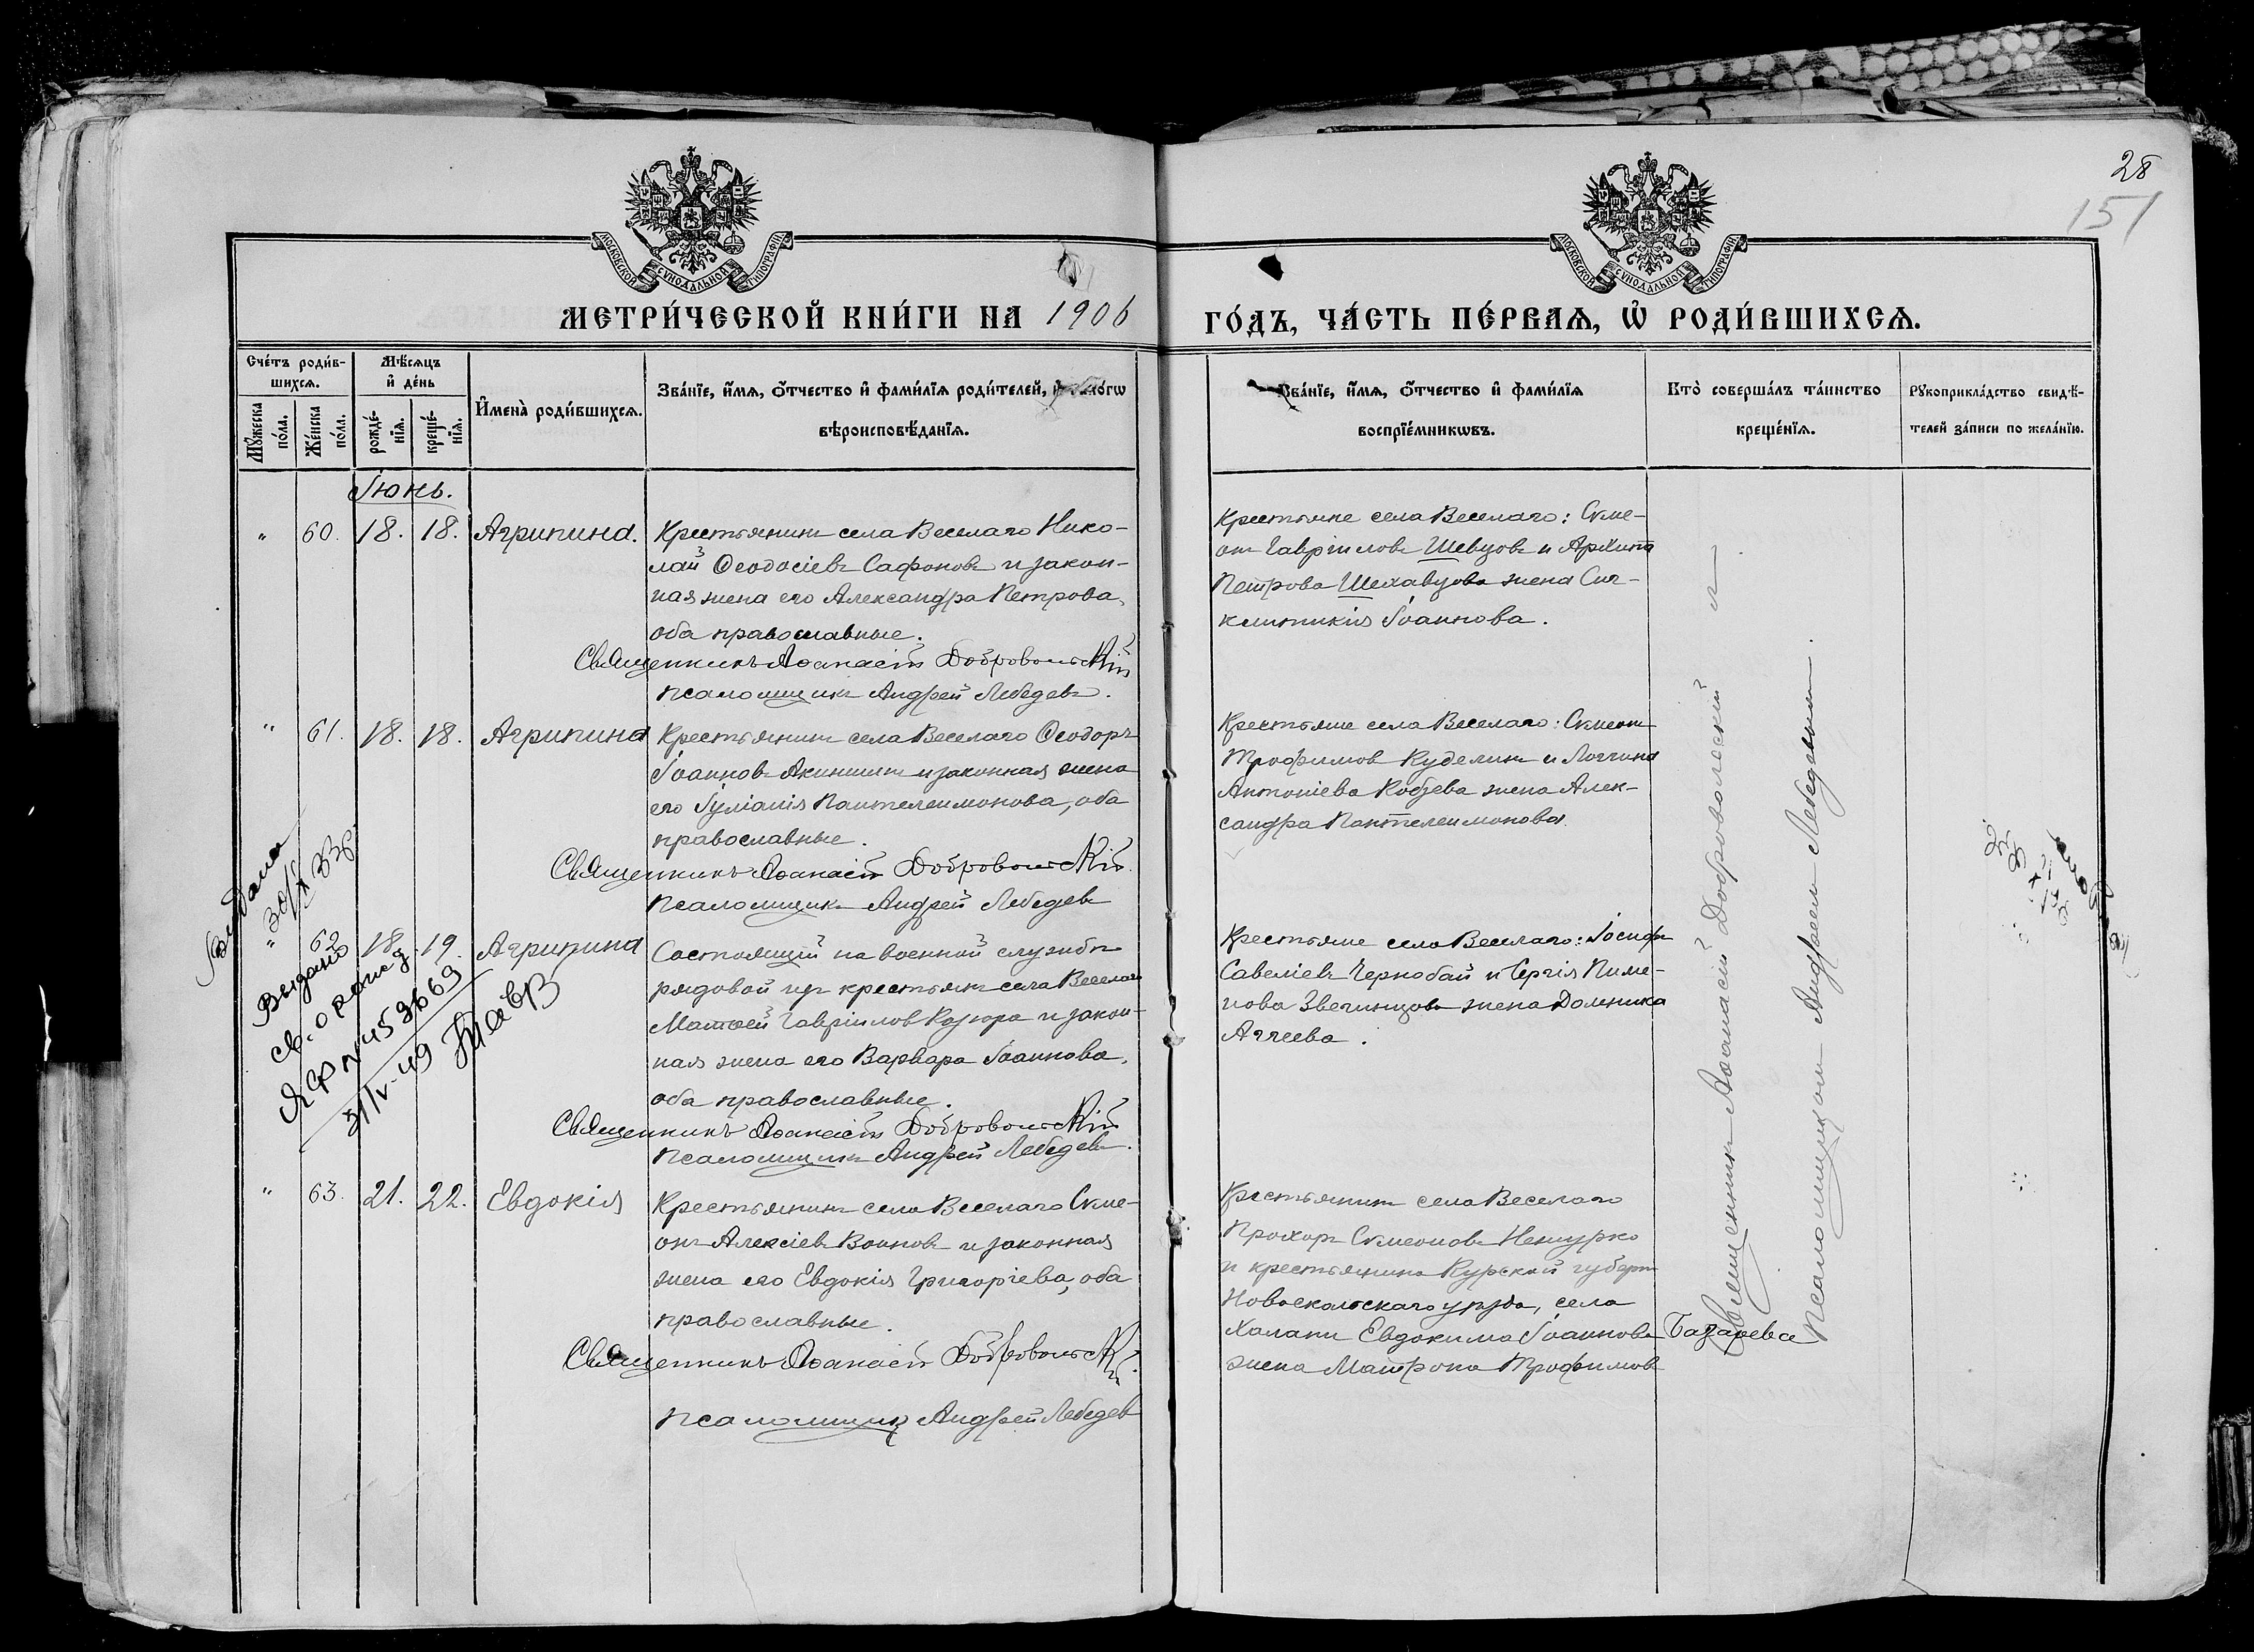 28
151
МОСКОВСКОЙ СѴНОДАЛЬНОЙ ТИПОГРАФІИ
МОСКОВСКОЙ СѴНОДАЛЬНОЙ ТИПОГРАФІИ
МЕТРИ́ЧЕСКОЙ КНИ́ГИ НА 1906
ГО́ДЪ, ЧА́СТЬ ПЕ́РВАѦ, Ѡ҆ РОДИ́ВШИХСѦ.
Сче́тъ роди́в-
шихсѧ.
Мѣ́сѧцъ
и҆ де́нь
Мꙋ́жеска
по́ла.
Же́нска
по́ла.
рожде́-
нїѧ.
креще́-
нїѧ.
И҆мена̀ роди́вшихсѧ.
Зва́нїе, и҆́мѧ, ѻ҆́тчество и҆ фами́лїѧ роди́телей, и҆
вѣроисповѣ́данїѧ.
Зва́нїе, и҆́мѧ, ѻ҆́тчество и҆ фами́лїѧ
воспрїе́мникѡвъ.
Кто̀ соверша́лъ та́инство
креще́нїѧ.
Рꙋкоприкла́дство свидѣ́-
телей за́писи по жела́нїю.
Іюнь.
" 60. 18. 18. Агрипина.
Крестьянинъ села Веселаго Нико-
лай Ѳеодосіевъ Сафоновъ и закон-
ная жена его Александра Петрова,
оба православные.
Священникъ Аѳанасій Добровольскій
Псаломщикъ Андрей Лебедевъ.
Крестьяне села Веселаго: Симе-
онъ Гавріиловъ Шевцовъ и Архипа
Петрова Шехавцова жена Син-
клитикія Іоаннова.
" 61. 18. 18. Агрипина
Крестьянинъ села Веселаго Ѳеодоръ
Іоанновъ Акиншинъ и законная жена
его Іуліанія Пантелеимонова, оба
православные.
Священникъ Аѳанасій Добровольскій.
Псаломщикъ Андрей Лебедевъ
Крестьяне села Веселаго: Симеонъ
Трофимов Куделинъ и Логгина
Антоніева Кобзева жена Алек-
сандра Пантелеимонова.
" 62 18. 19. Агрипина
Состоящій на военной службѣ
рядовой изъ крестьянъ села Веселаго
Матѳей Гавріилов Козюра и закон-
ная жена его Варвара Іоаннова,
оба православные.
Священникъ Аѳанасій Добровольскій
Псаломщикъ Андрей Лебедевъ.
Крестьяне села Веселаго: Іосифъ
Савеліевъ Чернобай и Сергія Пиме-
нова Звегинцова жена Домника
Аггеева.
Выдана
30/X 33г.
Выдано
св. о рожд.
ЯФ № 459669
31/V-49
" 63. 21. 22. Евдокія
Крестьянинъ села Веселаго Симе-
онъ Алексіевъ Воиновъ и законная
жена его Евдокія Григоріева, оба
православные.
Священникъ Аѳанасій Добровольскій.
Псаломщикъ Андрей Лебедев
Крестьянинъ села Веселаго
Прохоръ Симеоновъ Нешурко
и крестьянина Курской губерн
Новооскольскаго уѣзда, села
Халани Евдокима Іоаннова Базарева
жена Матрона Трофимов
Священникъ Аѳанасій Добровольскій и
Псаломщикъ Андреем Лебедевым.